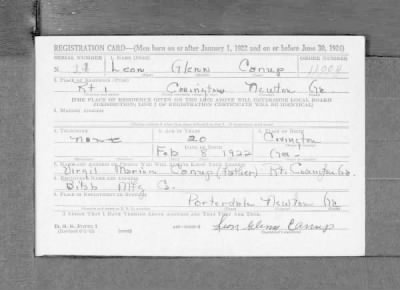 REGISTRATION CARD—(Men born on or after January 1, 1922 and on or before June 30, 1924)
SERIAL NUMBER 1. NAME (Print) ORDER NUMBER
Leon Glenn Canup
2. PLACE OF RESIDENCE (Print)
Rt 1 Covington Newton Ga
[THE PLACE OF RESIDENCE GIVEN ON THE LINE ABOVE WILL DETERMINE LOCAL BOARD
JURISDICTION; LINE 2 OF REGISTRATION CERTIFICATE WILL BE IDENTICAL]
3. MAILING ADDRESS
4. TELEPHONE 5. AGE IN YEARS 6. PLACE OF BIRTH
None 20 Covington
DATE OF BIRTH
Feb 8 1922 Ga.
7. NAME AND ADDRESS OF PERSON WHO WILL ALWAYS KNOW YOUR ADDRESS
Virgil Marion Canup (Father) Rt 1 Covington Ga.
8. EMPLOYER'S NAME AND ADDRESS
Bibb Mfg Co.
9. PLACE OF EMPLOYMENT OR BUSINESS
Porterdale Newton Ga
I AFFIRM THAT I HAVE VERIFIED ABOVE ANSWERS AND THAT THEY ARE TRUE.
D. S. S. FORM 1
Leon Glenn Canup